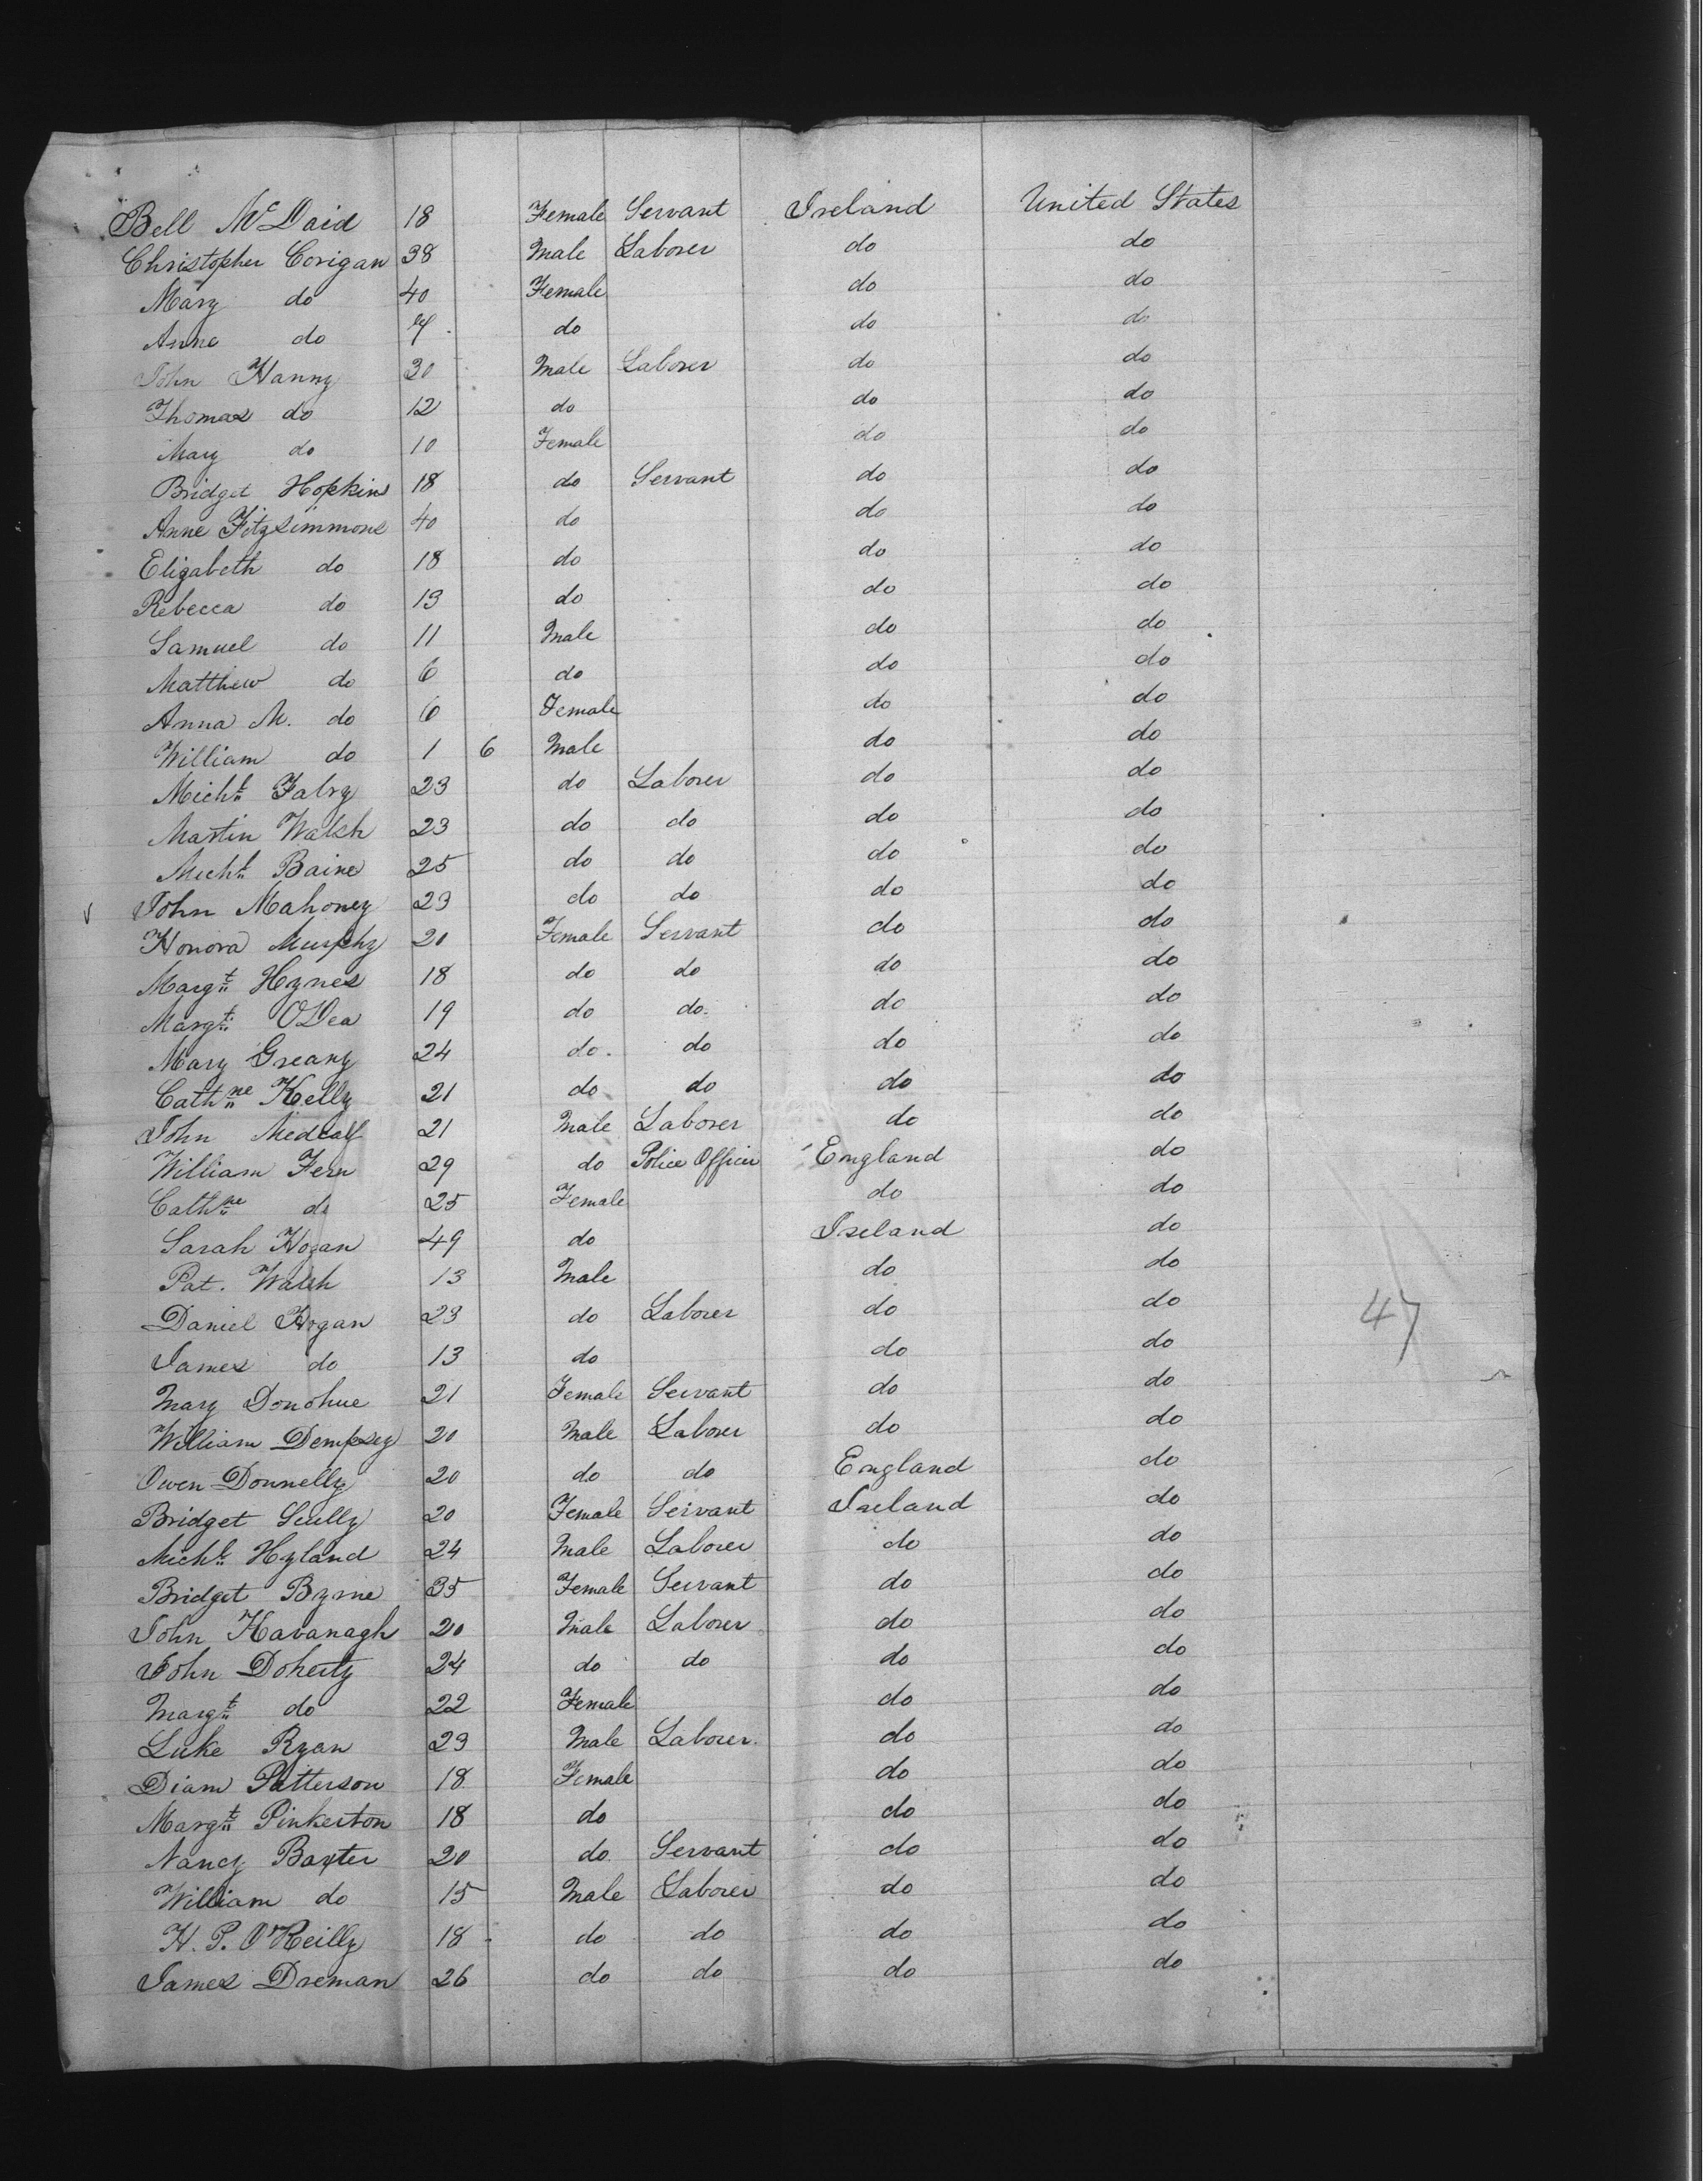 Bell McDaid 18 Female Servant Ireland United States
Christopher Corigan 38 Male Laborer do do
Mary do 40 Female do do
Anne do 7 do do do
John Hanny 30 Male Laborer do do
Thomas do 12 do do do
Mary do 10 Female do do
Bridget Hopkins 18 do Servant do do
Anne Fitzsimmons 40 do do do
Elizabeth do 18 do do do
Rebecca do 13 do do do
Samuel do 11 Male do do
Matthew do 6 do do do
Anna M. do 6 Female do do
William do 1 6 Male do do
Michl Falvy 23 do Laborer do do
Martin Walsh 23 do do do do
Michl Baine 25 do do do do
John Mahoney 23 do do do do
Honora Murphy 20 Female Servant do do
Margt Hynes 18 do do do do
Margt ODea 19 do do do do
Mary Greany 24 do do do do
Cathne Kelly 21 do do do do
John Medcalf 21 Male Laborer do do
William Fern 29 do Police Officer England do
Cathne do 25 Female do do
Sarah Hogan 49 do Ireland do
Pat. Walsh 13 Male do do
Daniel Hogan 23 do Laborer do do
47
James do 13 do do do
Mary Donohue 21 Female Servant do do
William Dempsey 20 Male Laborer do do
Owen Donnelly 20 do do England do
Bridget Scully 20 Female Servant Ireland do
Michl Hyland 24 Male Laborer do do
Bridget Byrne 35 Female Servant do do
John Kavanagh 20 Male Laborer do do
John Doherty 24 do do do do
Margt do 22 Female do do
Luke Ryan 23 Male Laborer do do
Diam Patterson 18 Female do do
Margt Pinkerton 18 do do do
Nancy Baxter 20 do Servant do do
William do 15 Male Laborer do do
H. P. O'Reilly 18 do do do do
James Dreman 26 do do do do